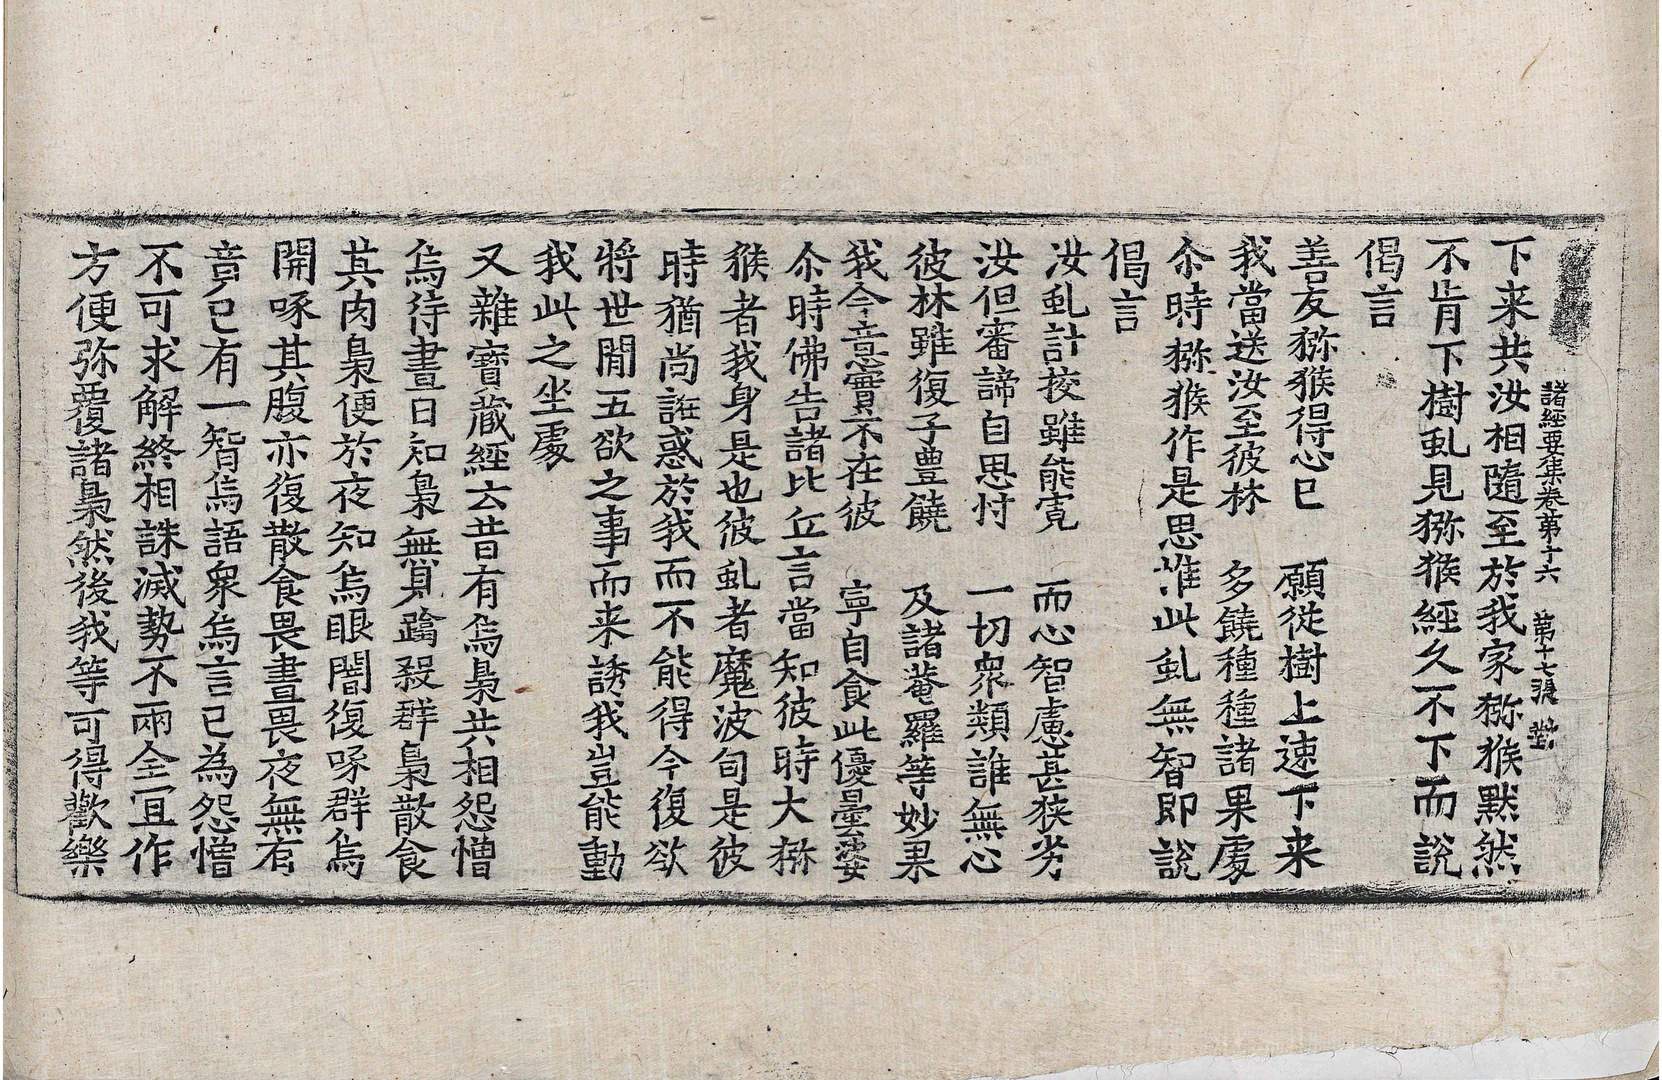 諸經要集卷第十六 第十七張 塋
下来共汝相隨至於我家獼猴默然
不肯下樹虬見獼猴經久不下而說
偈言
善友獼猴得心已 願從樹上速下来
我當送汝至彼林 多饒種種諸果處
尒時獼猴作是思惟此虬無智即說
偈言
汝虬計挍雖能寬 而心智慮甚狹劣
汝但審諦自思忖 一切衆類誰無心
彼林雖復子豊饒 及諸菴羅等妙果
我今意實不在彼 寧自食此優曇婆
尒時佛告諸比丘言當知彼時大獼
猴者我身是也彼虬者魔波旬是彼
時猶尚誑惑於我而不能得今復欲
將世間五欲之事而来誘我豈能動
我此之坐處
又雜寶藏經云昔有烏梟共相怨憎
烏待晝日知梟無見蹹殺群梟散食
其肉梟便於夜知烏眼闇復啄群烏
開啄其腹亦復散食畏晝畏夜無有
竟已有一智烏語衆烏言已為怨憎
不可求解終相誅滅勢不兩全宜作
方便弥覆諸梟然後我等可得歡樂